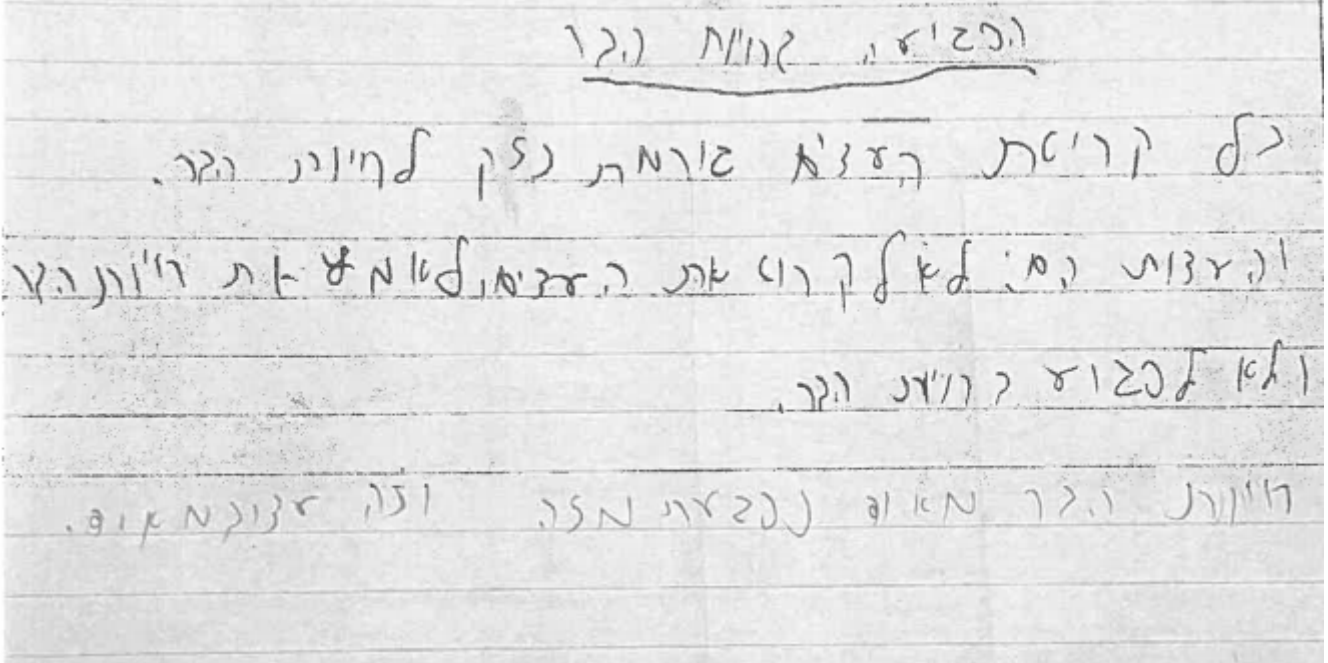 הפגיעה בחיות הבר
כל קריטת העצים גורמת נזק לחיות הבר.
והעצות הם: לא לקרוט את העצים, לא את חיות הבר
ולא לפגוע בחיות הבר.
חיות הבר מאוד נפגעת מזה וזה עצוב מאוד.